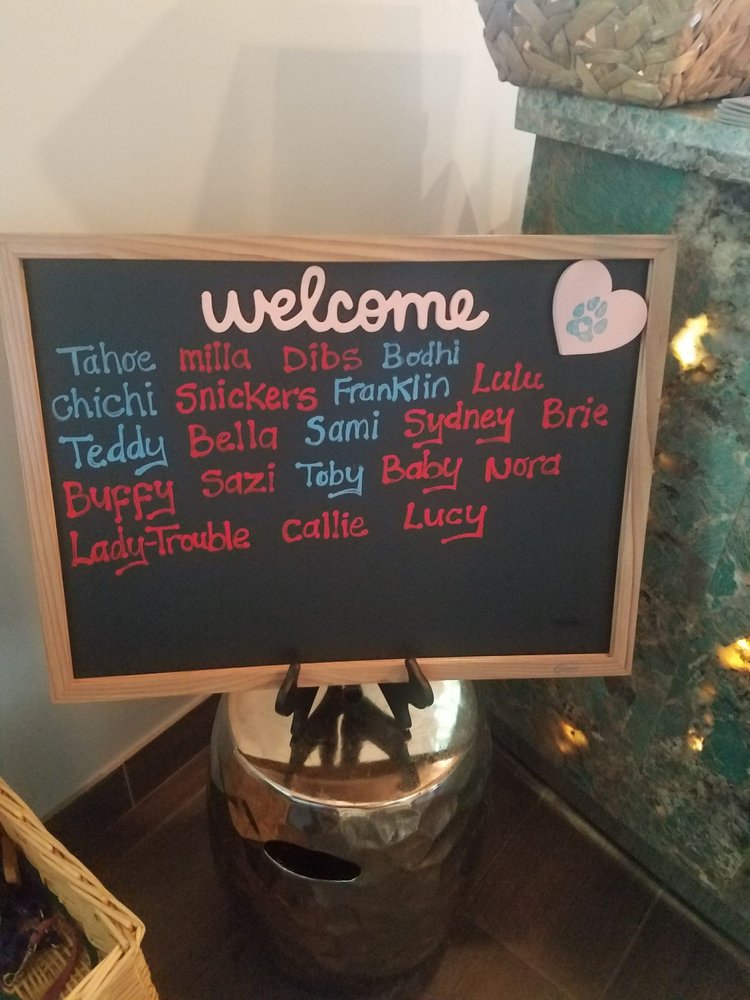 welcome
Tahoe milla Dibs Bodhi
Chichi Snickers Franklin Lulu
Teddy Bella Sami Sydney Brie
Buffy Sazi Toby Baby Nora
Lady-Trouble Callie Lucy